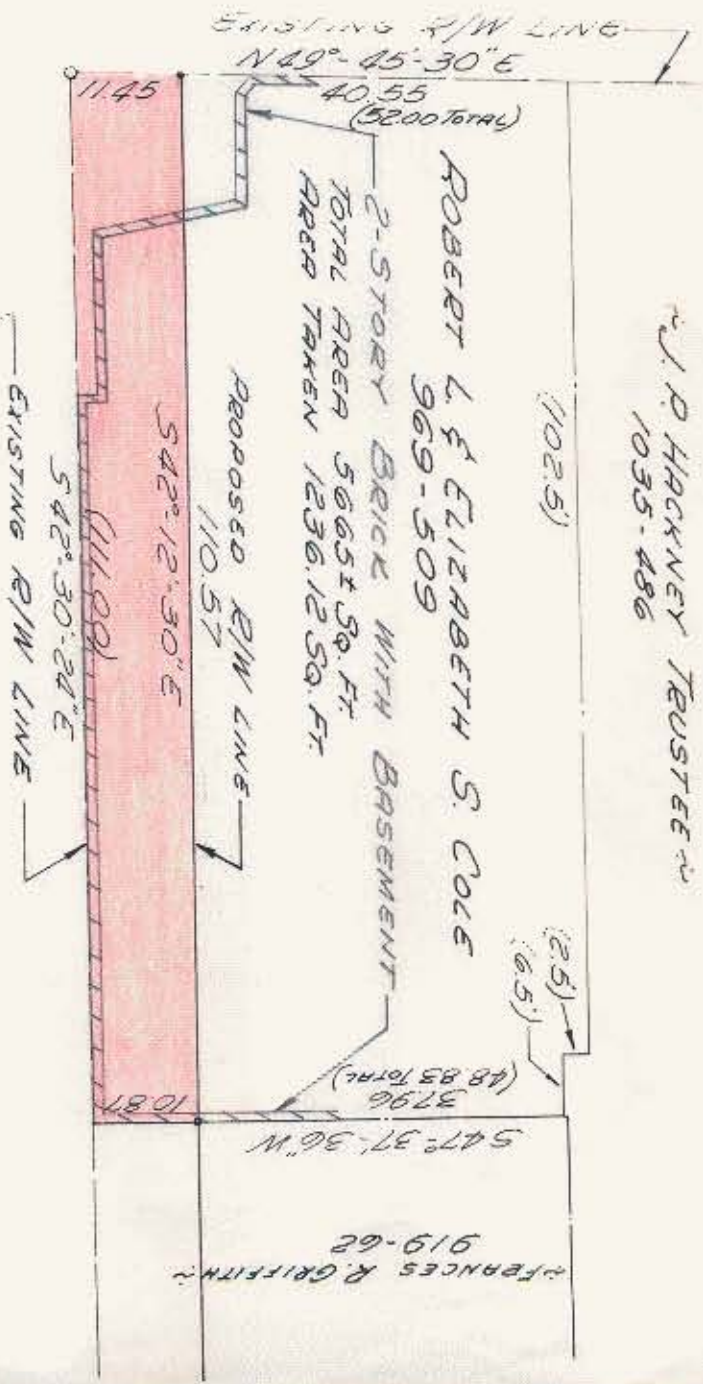 EXISTING R/W LINE
N 49°-45'-30" E
11.45
40.55
(52.00 TOTAL)
~J. P. HACKNEY TRUSTEE~
1035-486
(102.5')
ROBERT L & ELIZABETH S. COLE
969-509
2-STORY BRICK WITH BASEMENT
TOTAL AREA 5665± SQ. FT.
AREA TAKEN 1236.12 SQ. FT.
PROPOSED R/W LINE
110.57
S 42°-12'-30" E
(111.00)
S 42°-30'-24" E
EXISTING R/W LINE
(2.5')
(6.5')
(48.83 TOTAL)
37.96
10.87
S 47°-37'-36" W
~FRANCES R. GRIFFITH~
919-62